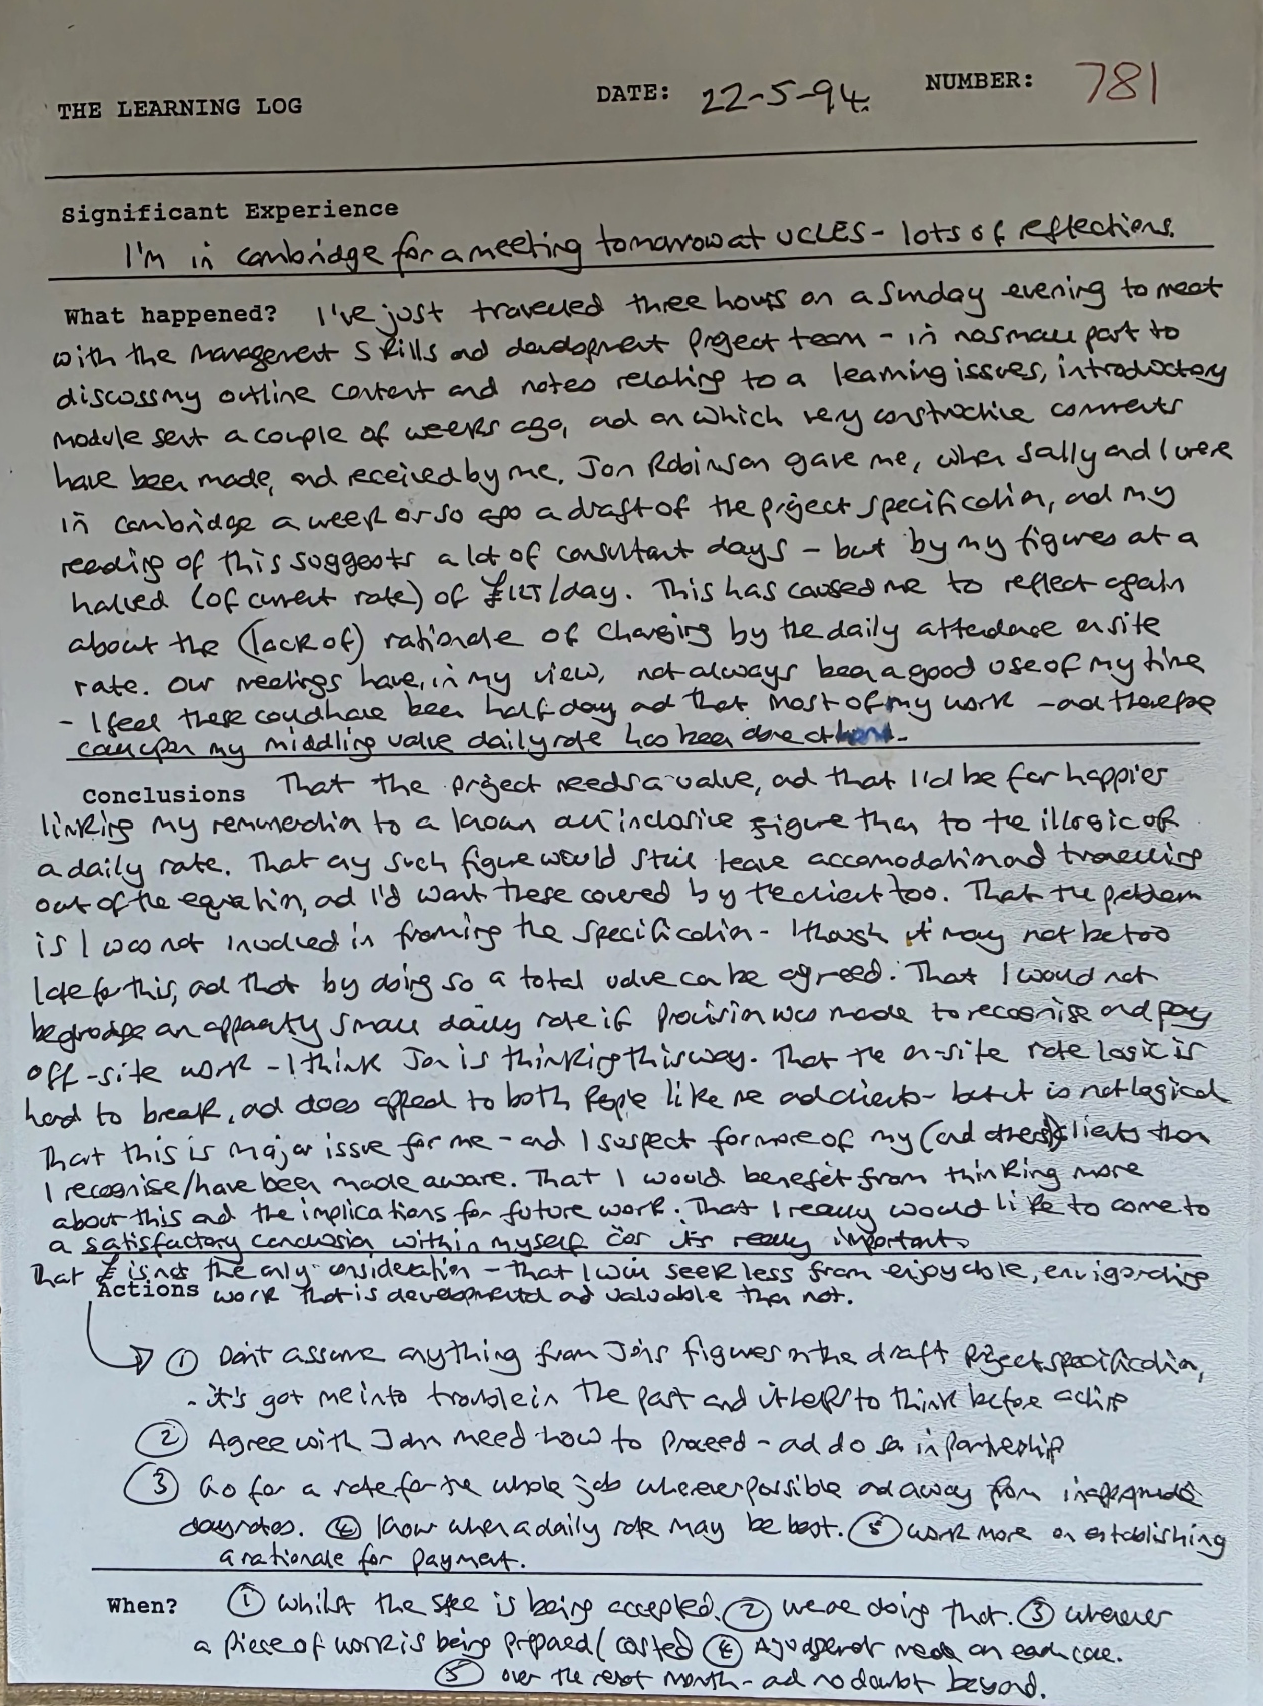 THE LEARNING LOG DATE: 22-5-94. NUMBER: 781
Significant Experience
I'm in cambridge for a meeting tomorrow at UCLES - lots of reflections.
What happened? I've just travelled three hours on a Sunday evening to meet
with the Management Skills and development project team - in no small part to
discuss my outline content and notes relating to a learning issues, introductory
module sent a couple of weeks ago, and on which very constructive comments
have been made, and received by me. Jon Robinson gave me, when Sally and I were
in cambridge a week or so ago a draft of the project specification, and my
reading of this suggests a lot of consultant days - but by my figures at a
halved (of current rate) of £125/day. This has caused me to reflect again
about the (lack of) rationale of charging by the daily attendance on site
rate. Our meetings have, in my view, not always been a good use of my time
- I feel these could have been half day and that most of my work - and therefore
my middling value daily rate has been done at home.
Conclusions That the project needs a value, and that I'd be far happier
linking my remuneration to a known all inclusive figure than to the illogic of
a daily rate. That any such figure would still leave accomodation and travelling
out of the equation, and I'd want these covered by the client too. That the problem
is I was not involved in framing the specification - though it may not be too
late for this, and that by doing so a total value can be agreed. That I would not
begrudge an apparently small daily rate if provision was made to recognise and pay
off-site work - I think Jon is thinking this way. That the on-site rate logic is
hard to break, and does appeal to both people like me and clients - but it is not logical
That this is major issue for me - and I suspect for more of my (and others) clients than
I recognise/have been made aware. That I would benefit from thinking more
about this and the implications for future work. That I really would like to come to
a satisfactory conclusion within myself cos its really important.
That £ is not the only consideration - that I will seek less from enjoyable, envigorating
Actions work that is developmental and valuable than not.
① Don't assume anything from Jon's figures in the draft project specification,
- it's got me into trouble in the past and it helps to think before acting
② Agree with John meed how to proceed - and do so in partnership
③ Go for a rate for the whole job wherever possible and away from inappropriate
dayrates. ④ Know when a daily rate may be best. ⑤ work more on establishing
a rationale for payment.
When? ① Whilst the spec is being accepted. ② we are doing that. ③ wherever
a piece of work is being prepared/costed ④ A judgement made on each case.
⑤ over the next month - and no doubt beyond.